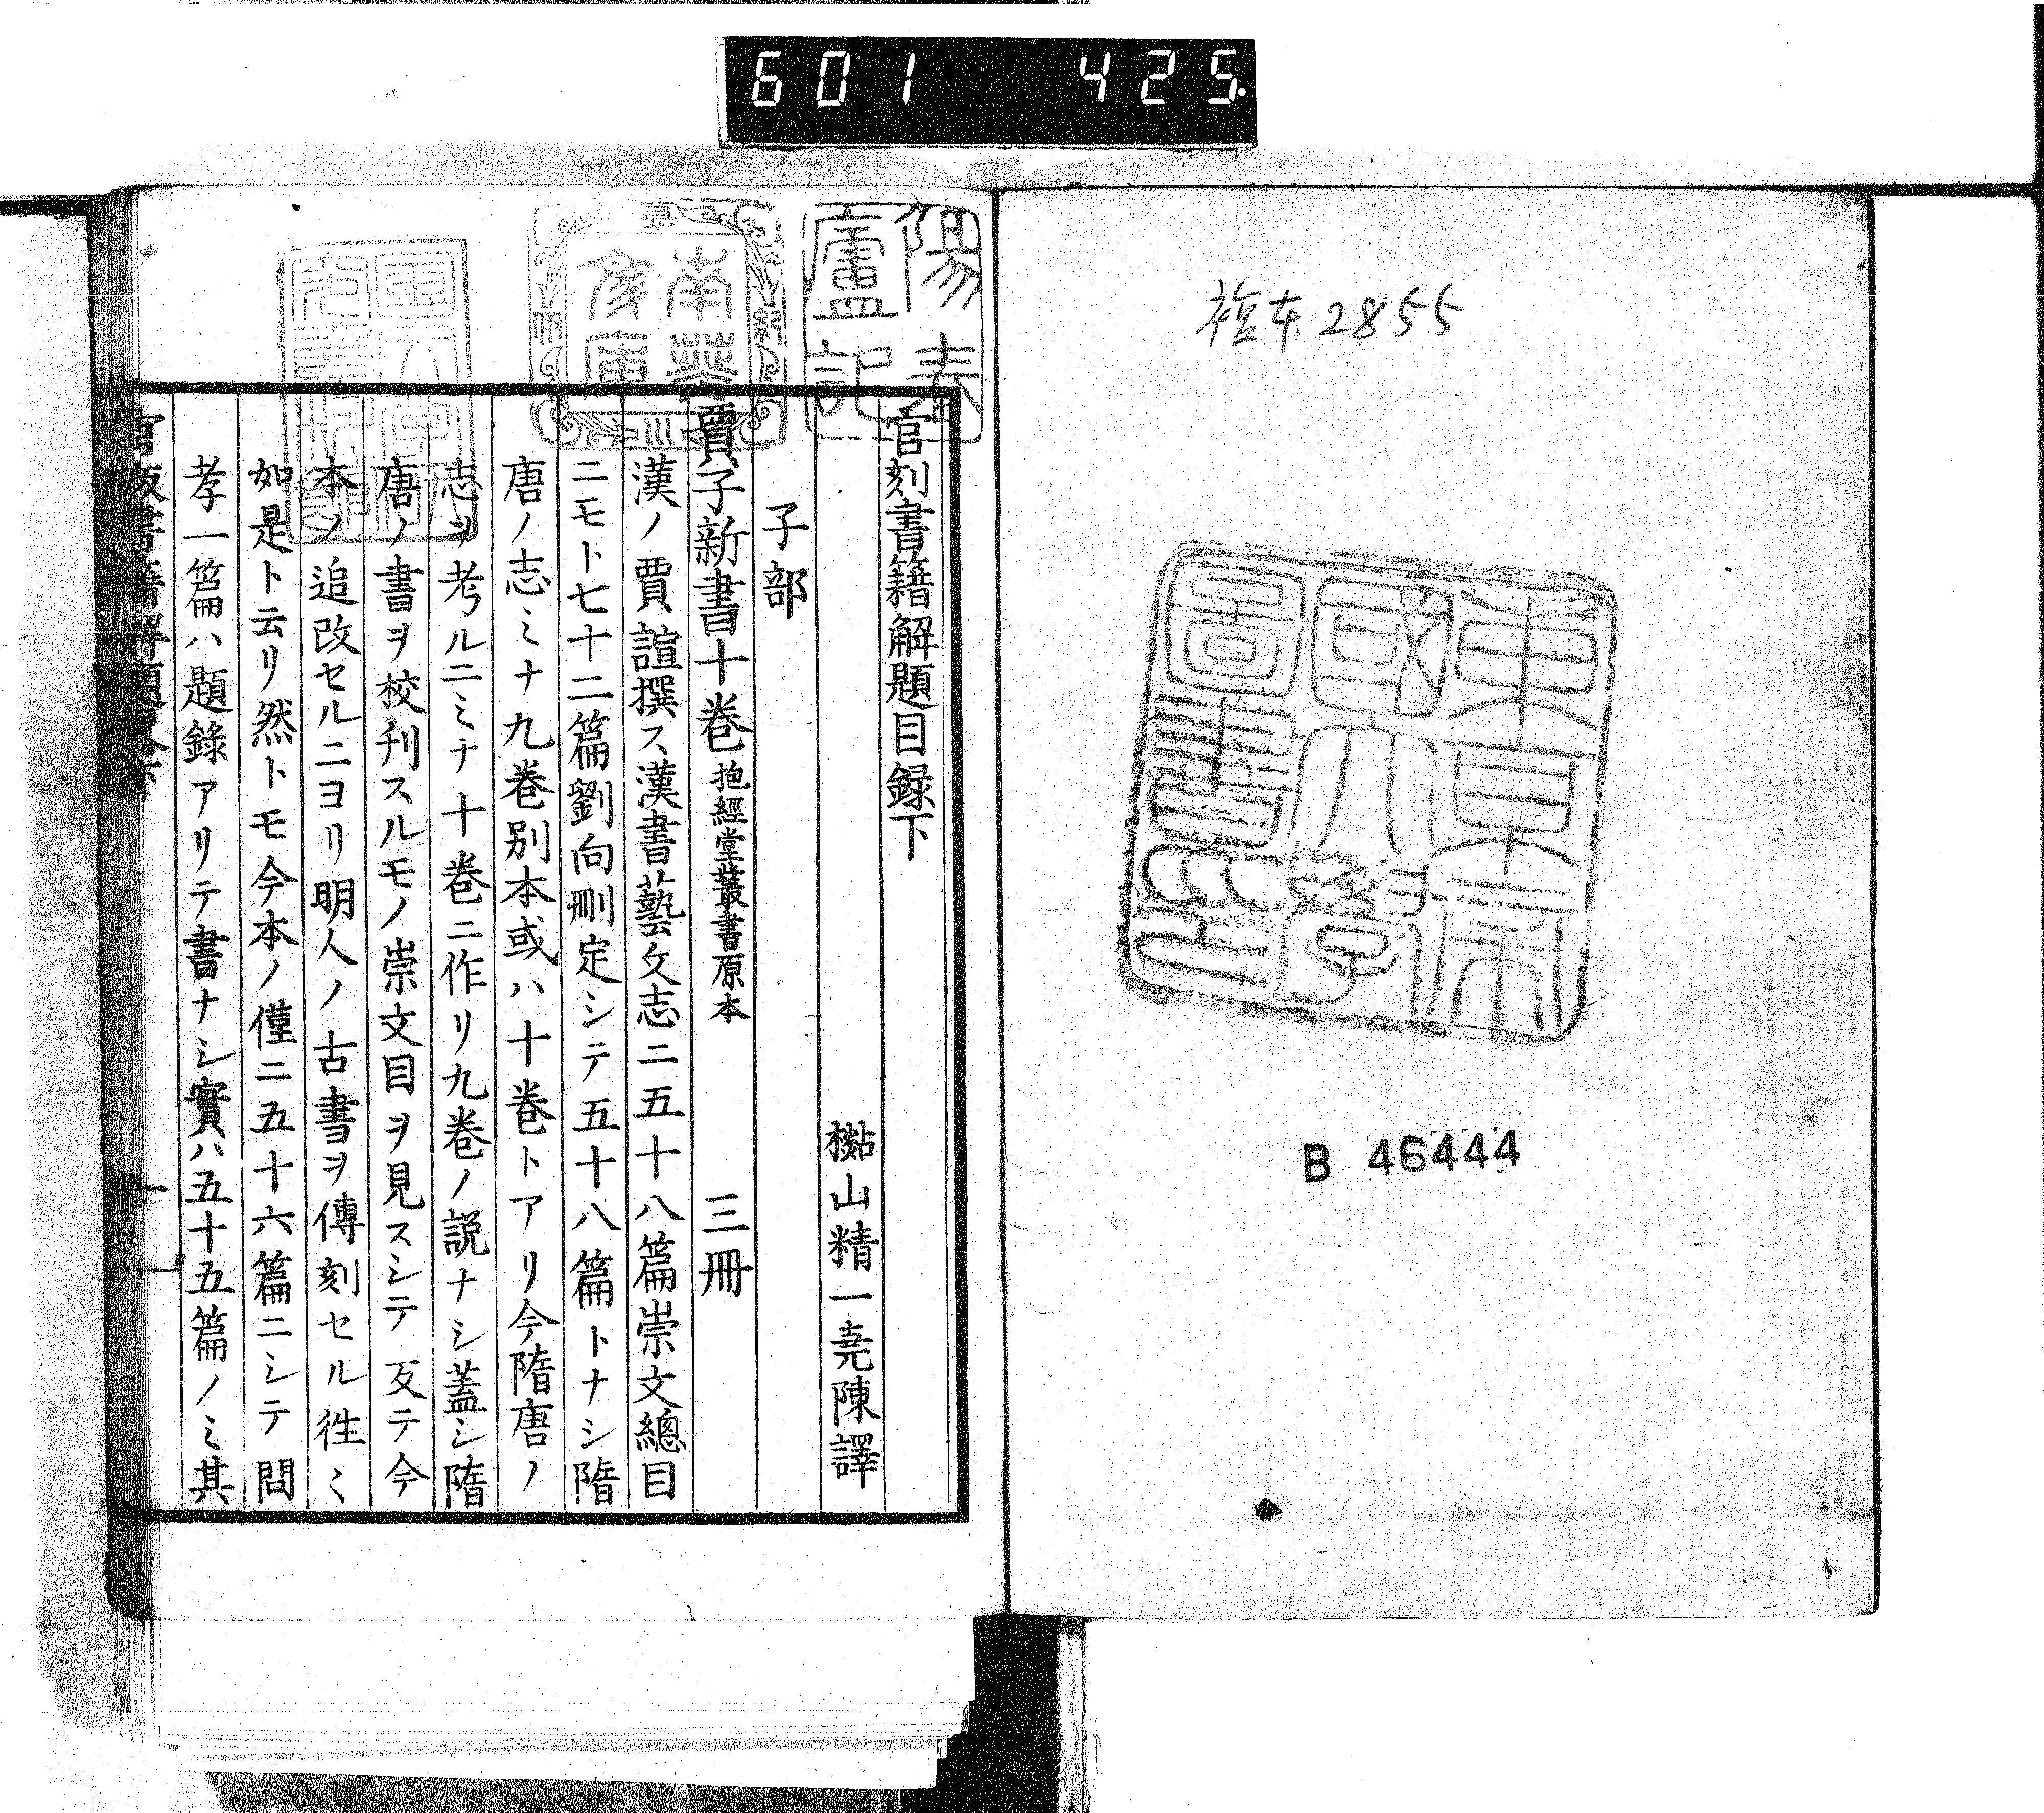 601 425.
複本 2855
東京帝國大學圖書印
B 46444
陽春廬記
南葵文庫
官刻書籍解題目録下
樕山精一尭陳譯
子部
賈子新書十卷 抱經堂叢書原本 三冊
漢ノ賈誼撰ス漢書藝文志ニ五十八篇崇文總目
ニモト七十二篇劉向刪定シテ五十八篇トナシ隋
唐ノ志ミナ九卷別本或ハ十卷トアリ今隋唐ノ
志ヲ考ルニミナ十卷ニ作リ九卷ノ説ナシ蓋シ隋
唐ノ書ヲ校刋スルモノ崇文目ヲ見スシテ反テ今
本ノ追改セルニヨリ明人ノ古書ヲ傳刻セル徃ミ
如是ト云リ然トモ今本ノ僅ニ五十六篇ニシテ問
孝一篇ハ題錄アリテ書ナシ實ハ五十五篇ノミ其
官板書籍解題卷下